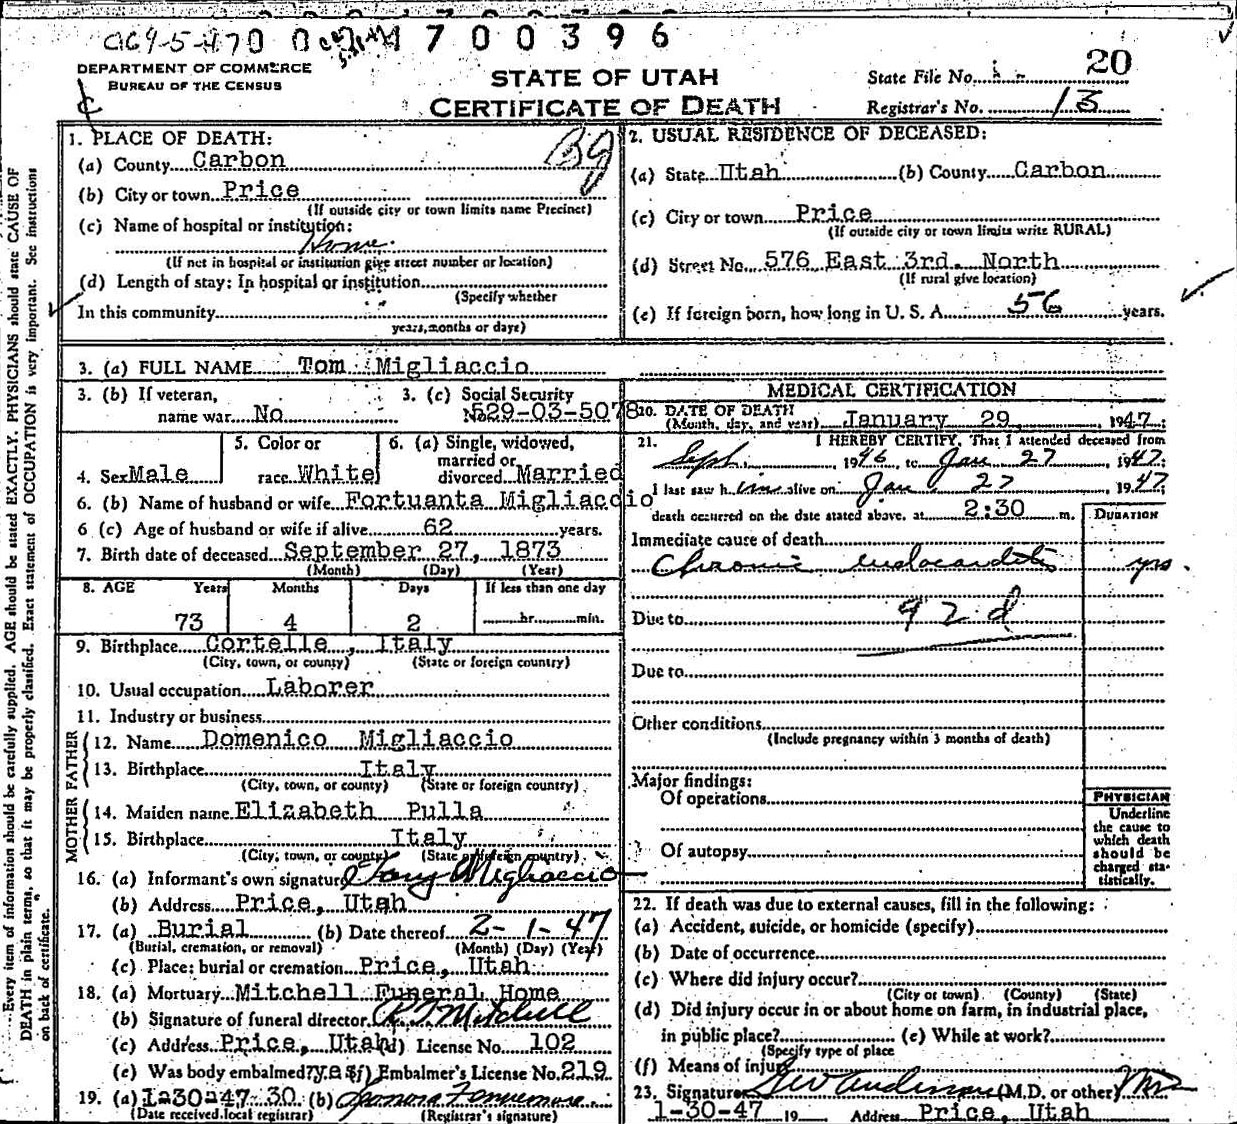 4700396
DEPARTMENT OF COMMERCE
BUREAU OF THE CENSUS
STATE OF UTAH
CERTIFICATE OF DEATH
State File No. 20
Registrar's No. 13
Every item of information should be carefully supplied. AGE should be stated EXACTLY. PHYSICIANS should state CAUSE OF
DEATH in plain terms, so that it may be properly classified. Exact statement of OCCUPATION is very important. See instructions
on back of certificate.
1. PLACE OF DEATH:
(a) County Carbon
(b) City or town Price
(If outside city or town limits name Precinct)
(c) Name of hospital or institution:
Home.
(If not in hospital or institution give street number or location)
(d) Length of stay: In hospital or institution
(Specify whether
In this community
years, months or days)
2. USUAL RESIDENCE OF DECEASED:
(a) State Utah (b) County Carbon
(c) City or town Price
(If outside city or town limits write RURAL)
(d) Street No. 576 East 3rd. North
(If rural give location)
(e) If foreign born, how long in U. S. A. 56 years.
3. (a) FULL NAME Tom Migliaccio
3. (b) If veteran,
name war No
3. (c) Social Security
No. 529-03-5078
4. Sex Male
5. Color or
race White
6. (a) Single, widowed,
married or
divorced Married
6. (b) Name of husband or wife Fortuanta Migliaccio
6 (c) Age of husband or wife if alive 62 years.
7. Birth date of deceased September 27, 1873
(Month) (Day) (Year)
8. AGE Years Months Days If less than one day
73 4 2 hr. min.
9. Birthplace Cortelle, Italy
(City, town, or county) (State or foreign country)
10. Usual occupation Laborer
11. Industry or business
FATHER
12. Name Domenico Migliaccio
13. Birthplace Italy
(City, town, or county) (State or foreign country)
MOTHER
14. Maiden name Elizabeth Pulla
15. Birthplace Italy
(City, town, or county) (State or foreign country)
16. (a) Informant's own signature Tony Migliaccio
(b) Address Price, Utah
17. (a) Burial (b) Date thereof 2-1-47
(Burial, cremation, or removal) (Month) (Day) (Year)
(c) Place: burial or cremation Price, Utah
18. (a) Mortuary Mitchell Funeral Home
(b) Signature of funeral director Mitchell
(c) Address Price, Utah (d) License No. 102
(e) Was body embalmed? yes (f) Embalmer's License No. 219
19. (a) 1-30-47 30 (b)
(Date received local registrar) (Registrar's signature)
MEDICAL CERTIFICATION
20. DATE OF DEATH
(Month, day, and year) January 29, 1947.
21. I HEREBY CERTIFY, That I attended deceased from
Sept, 1946, to Jan 27, 1947;
I last saw him alive on Jan 27, 1947;
death occurred on the date stated above, at 2:30 m.
DURATION
Immediate cause of death
Chronic endocarditis yrs.
Due to 92 d
Due to
Other conditions
(Include pregnancy within 3 months of death)
Major findings:
Of operations
Of autopsy
PHYSICIAN
Underline
the cause to
which death
should be
charged sta-
tistically.
22. If death was due to external causes, fill in the following:
(a) Accident, suicide, or homicide (specify)
(b) Date of occurrence
(c) Where did injury occur?
(City or town) (County) (State)
(d) Did injury occur in or about home on farm, in industrial place,
in public place? (e) While at work?
(Specify type of place
(f) Means of injury
23. Signature (M.D. or other)
1-30-47 19 Address Price, Utah